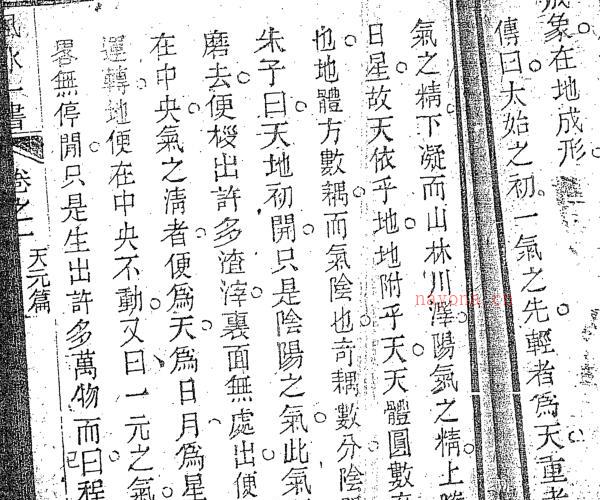 成象在地成形
傳曰太始之初一氣之先輕者為天重者
氣之精下凝而山林川澤陽氣之精上
日星故天依乎地地附乎天天體圓數
也地體方數耦而氣陰也奇耦數分陰
朱子曰天地初開只是陰陽之氣此氣
磨去便桚出許多渣滓裏面無處出便
在中央氣之清者便為天為日月為星
運轉地便在中央不動又曰一元之氣
畧無停閒只是生出許多萬物而已程
風水一書 卷之二 天元篇
nayona.cn